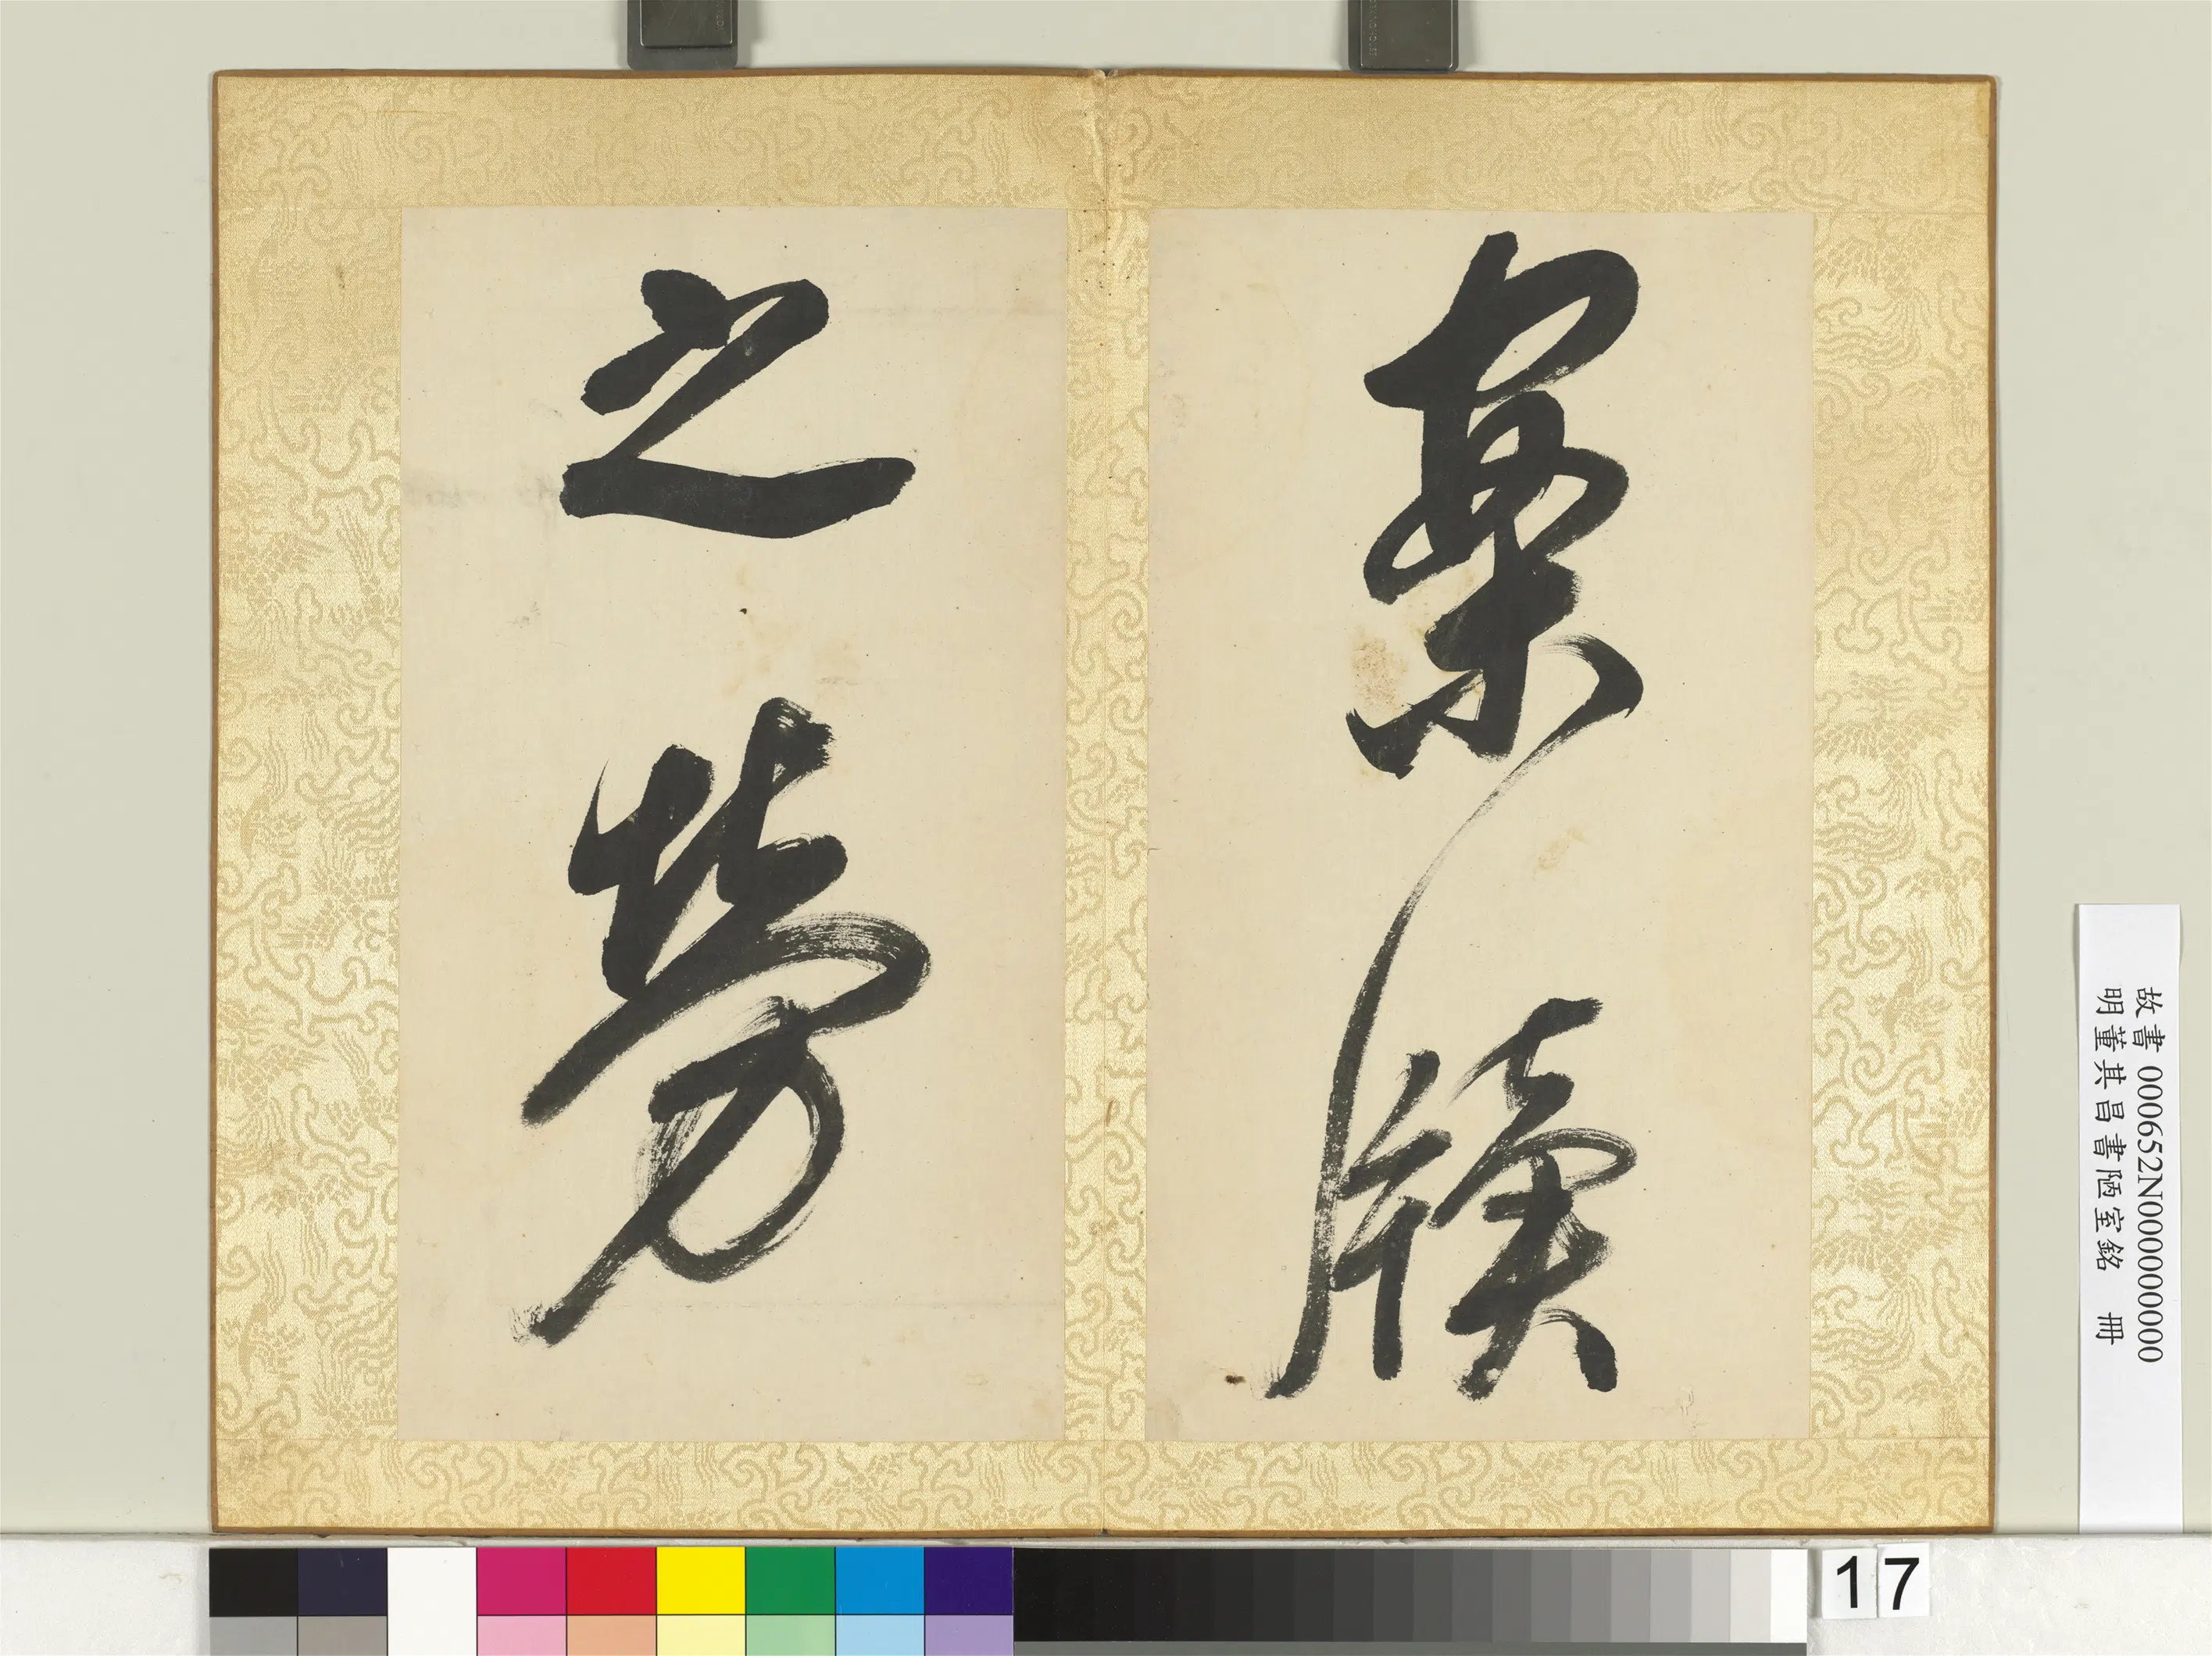 案牘
之勞
故書 000652N000000000
明董其昌書陋室銘 冊
17